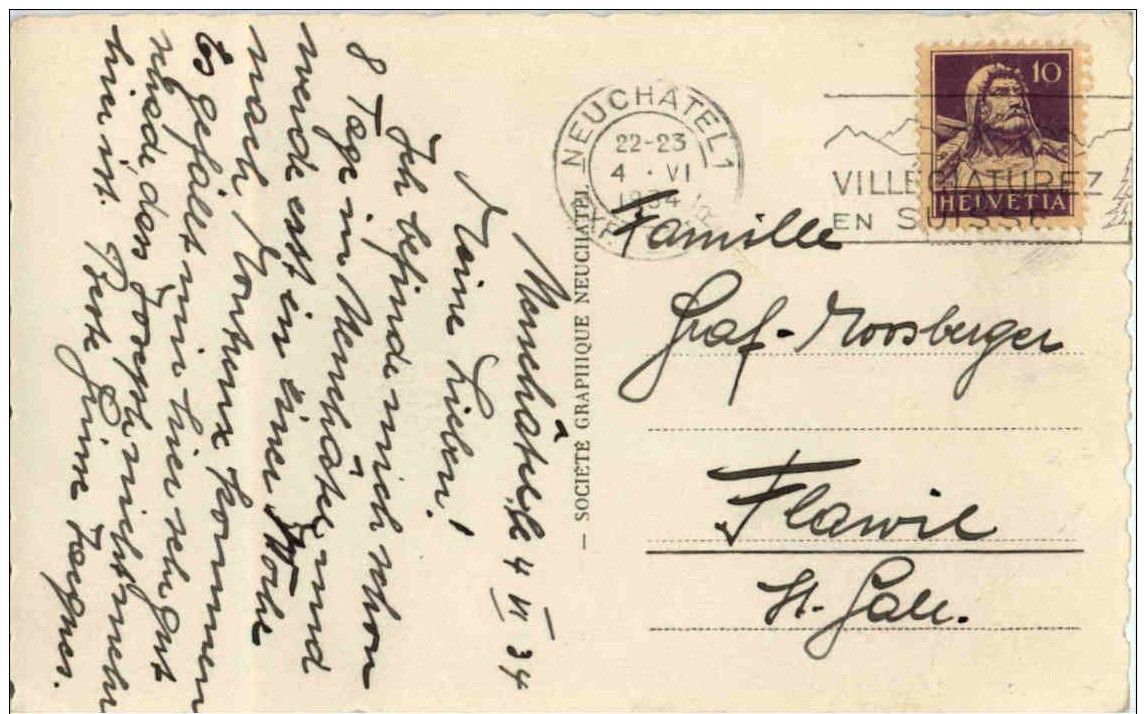 Neuchâtel, 4 VI 34
Meine Lieben!
Ich befinde mich schon
8 Tage in Neuchâtel und
werde erst in einer Woche
nach Montreux kommen
Es gefällt mir hier sehr gut
schade, dass Joseph nicht mehr
hier ist. Beste Grüsse
— SOCIÉTÉ GRAPHIQUE NEUCHATEL —
NEUCHATEL 1
22-23
4 · VI
1934
VILLEGIATUREZ
EN SUISSE
10
HELVETIA
Famille
Graf-Moosberger
Flawil
St. Gall.